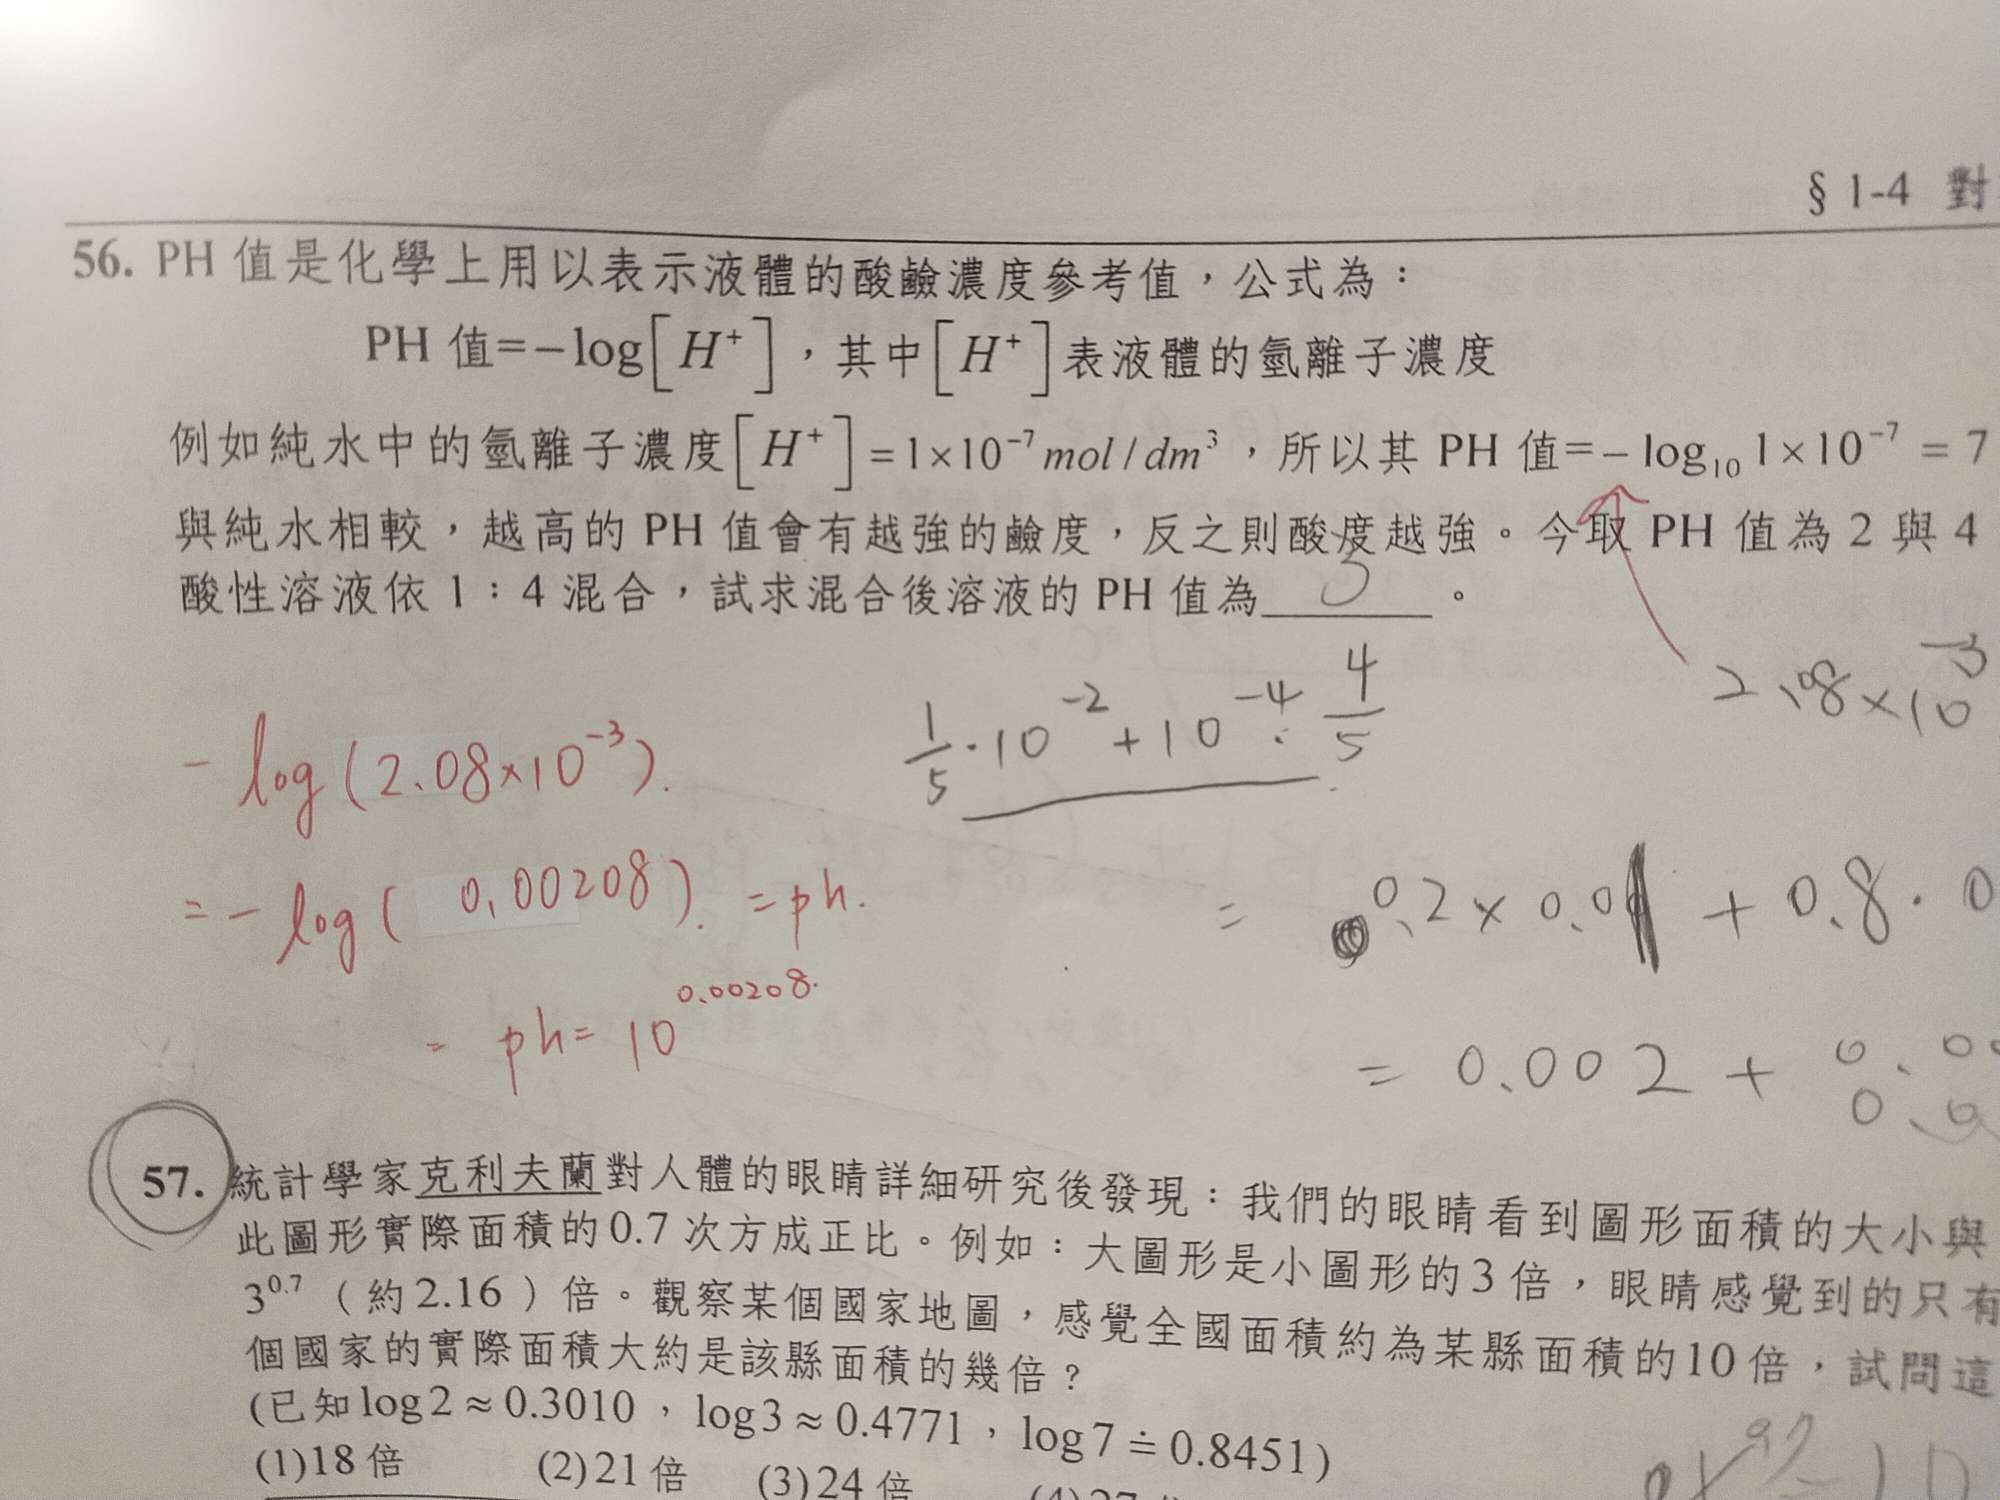 § 1-4 對
56. PH 值是化學上用以表示液體的酸鹼濃度參考值,公式為:
PH 值=−log[H⁺],其中[H⁺]表液體的氫離子濃度
例如純水中的氫離子濃度[H⁺]=1×10⁻⁷ mol/dm³,所以其 PH 值=−log₁₀ 1×10⁻⁷ = 7
與純水相較,越高的 PH 值會有越強的鹼度,反之則酸度越強。今取 PH 值為 2 與 4
酸性溶液依 1:4 混合,試求混合後溶液的 PH 值為 3 。
2.08×10⁻³
1/5·10⁻²+10⁻⁴·4/5
−log(2.08×10⁻³).
=−log(0.00208). =ph.
= 0.2×0.01+0.8·0
= ph=10^0.00208.
= 0.002+
57. 統計學家克利夫蘭對人體的眼睛詳細研究後發現:我們的眼睛看到圖形面積的大小與
此圖形實際面積的0.7 次方成正比。例如:大圖形是小圖形的3 倍,眼睛感覺到的只有
3^0.7 (約2.16)倍。觀察某個國家地圖,感覺全國面積約為某縣面積的10 倍,試問這
個國家的實際面積大約是該縣面積的幾倍?
(已知log2≈0.3010,log3≈0.4771,log7≐0.8451)
(1)18 倍 (2)21 倍 (3)24 倍